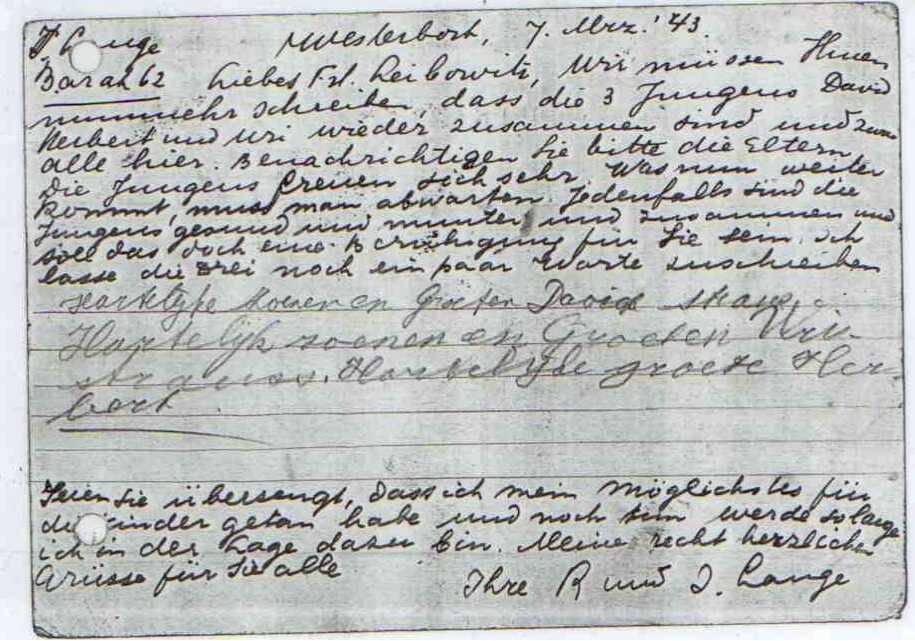 J. Lange Westerbork, 7. Mrz. '43.
Barak 62 Liebes Frl. Leibowitz, Wir müssen Ihnen
nunmehr schreiben, dass die 3 Jungens David
Herbert und Uri wieder zusammen sind und zwar
alle hier. Benachrichtigen Sie bitte die Eltern.
Die Jungens freuen sich sehr. Was nun weiter
kommt, muss man abwarten. Jedenfalls sind die
Jungens gesund und munter und zusammen und
soll das doch eine Beruhigung für Sie sein. Ich
lasse die drei noch ein paar Worte zuschreiben
Hartelijke zoenen en Groeten David
Hartelijk zoenen en Groeten Uri
Strauss. Hartelijke groete Her-
bert
Seien Sie überzeugt, dass ich mein möglichstes für
die Kinder getan habe und noch tun werde solange
ich in der Lage dazu bin. Meine recht herzlichen
Grüsse für Sie alle
Ihre R und J. Lange